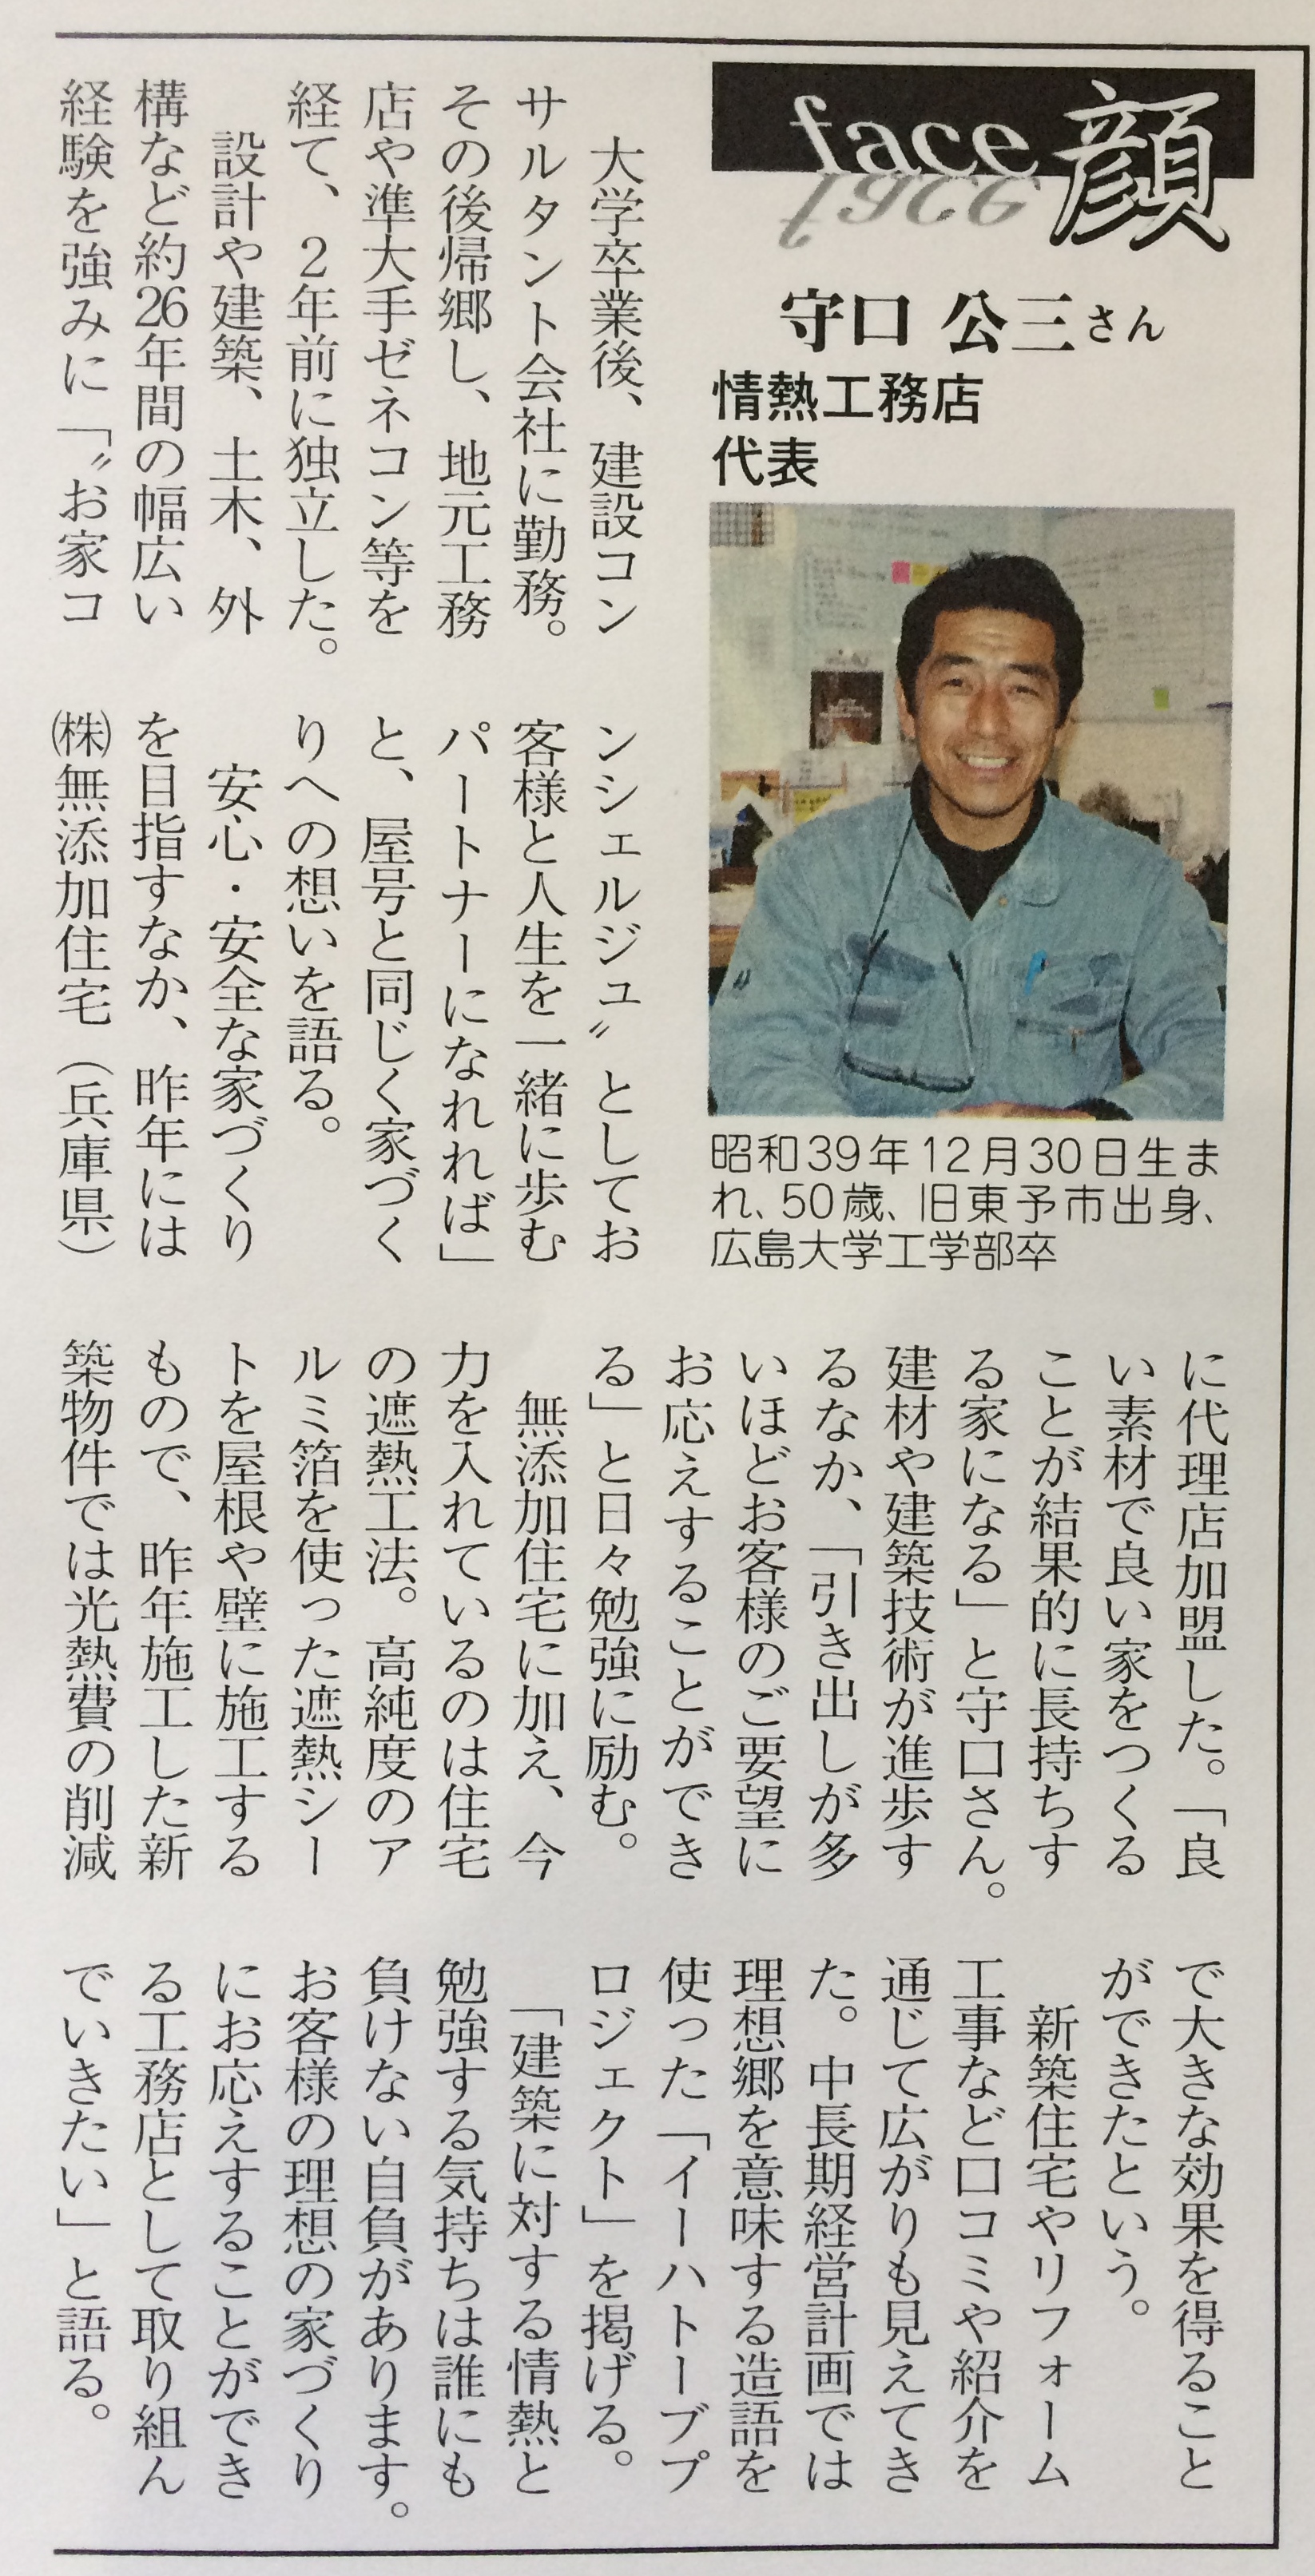 face 顔
守口 公三さん
情熱工務店
代表
昭和39年12月30日生ま
れ、50歳、旧東予市出身、
広島大学工学部卒
大学卒業後、建設コン
サルタント会社に勤務。
その後帰郷し、地元工務
店や準大手ゼネコン等を
経て、2年前に独立した。
設計や建築、土木、外
構など約26年間の幅広い
経験を強みに「〝お家コ
ンシェルジュ〟としてお
客様と人生を一緒に歩む
パートナーになれれば」
と、屋号と同じく家づく
りへの想いを語る。
安心・安全な家づくり
を目指すなか、昨年には
㈱無添加住宅（兵庫県）
に代理店加盟した。「良
い素材で良い家をつくる
ことが結果的に長持ちす
る家になる」と守口さん。
建材や建築技術が進歩す
るなか、「引き出しが多
いほどお客様のご要望に
お応えすることができ
る」と日々勉強に励む。
無添加住宅に加え、今
力を入れているのは住宅
の遮熱工法。高純度のア
ルミ箔を使った遮熱シー
トを屋根や壁に施工する
もので、昨年施工した新
築物件では光熱費の削減
で大きな効果を得ること
ができたという。
新築住宅やリフォーム
工事など口コミや紹介を
通じて広がりも見えてき
た。中長期経営計画では
理想郷を意味する造語を
使った「イーハトーブプ
ロジェクト」を掲げる。
「建築に対する情熱と
勉強する気持ちは誰にも
負けない自負があります。
お客様の理想の家づくり
にお応えすることができ
る工務店として取り組ん
でいきたい」と語る。